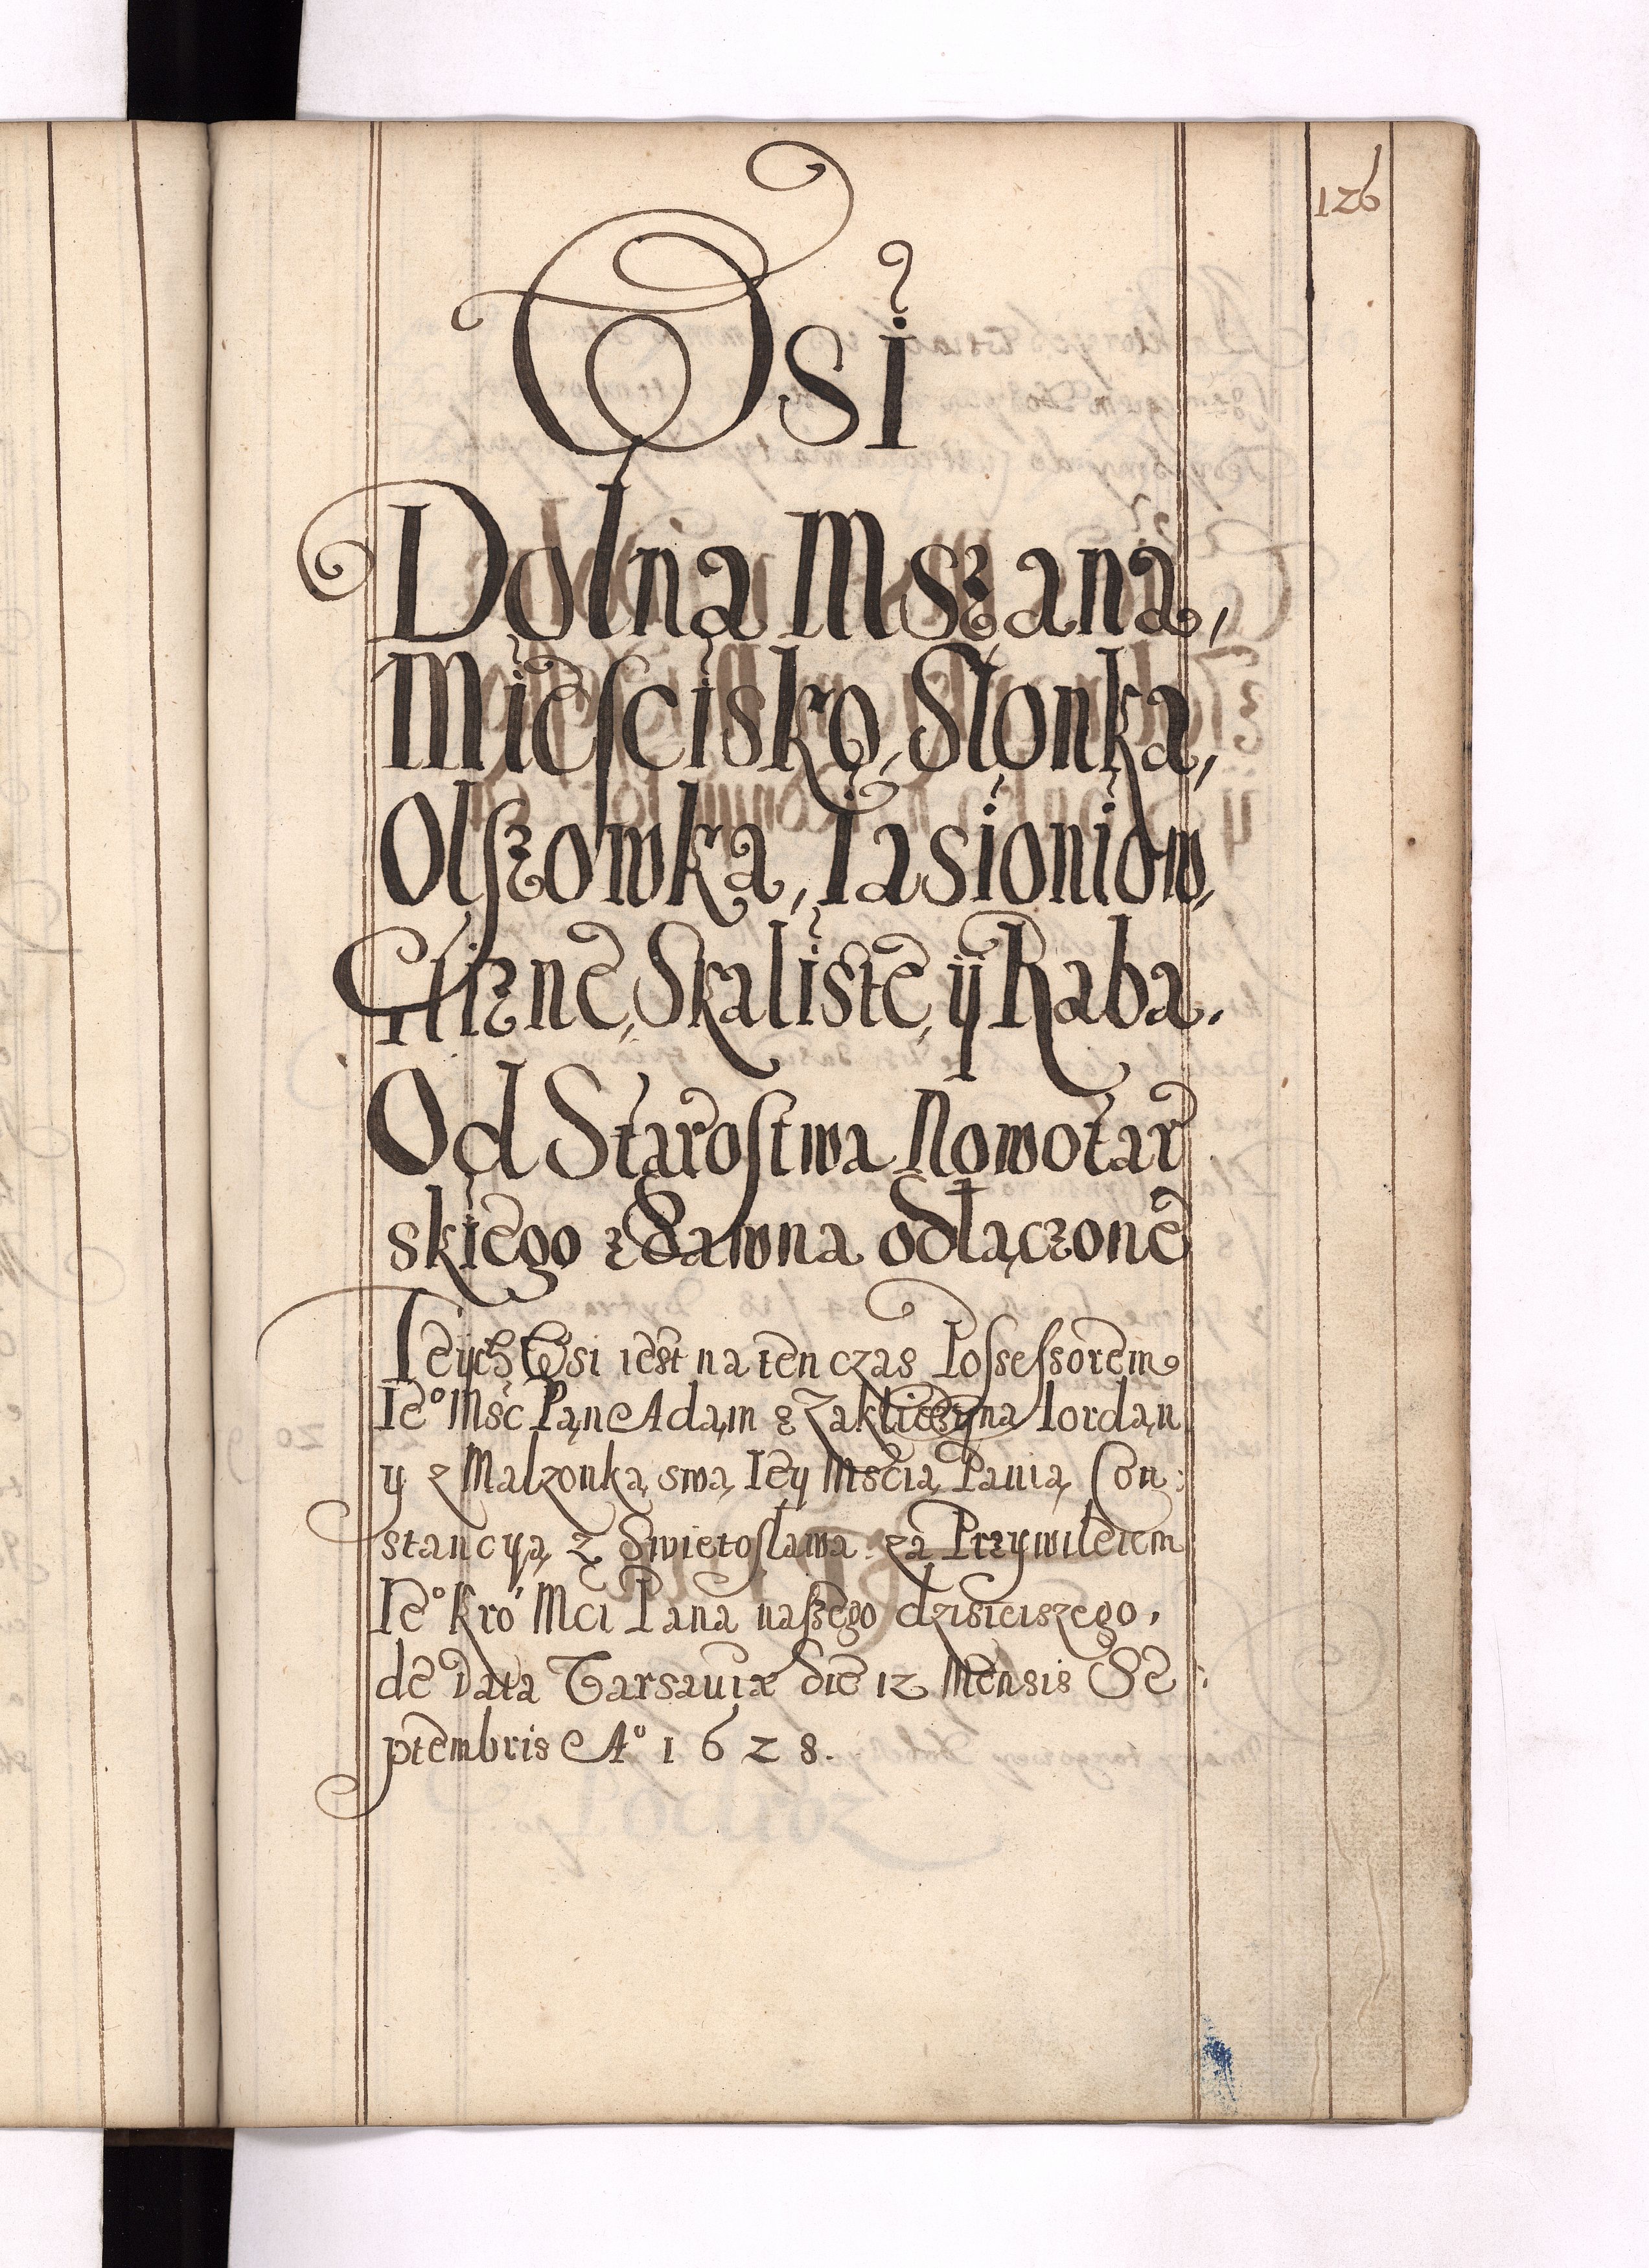 126
Wsi
Dolna Mszana,
Miescisko, Słonka,
Olszowka, Iasioniow,
Glizne, Skaliste, ÿ Raba.
Od Starostwa Nowotar
skiego zdawna odłączone
Teÿch Wsi iest na ten czas Possessorem
Ie° Msc Pan Adam z Zakliczyna Iordan
y z Malzonką swą Iey Mscią Panią Con:
stancyą z Swietosława za Przywileiem
Ie° Kro Mci Pana naszego dzisieiszego,
de Data Varsauiæ die 12 Mensis Se:
ptembris A° 1628.